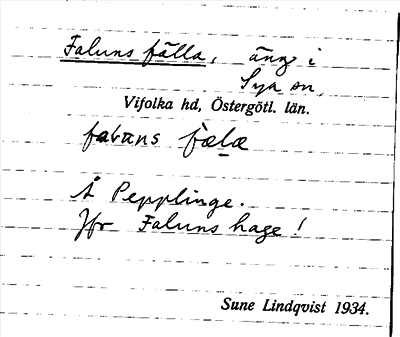 Faluns fälla, äng i
Sya sn,
Vifolka hd, Östergötl. län.
fæla
Å Pepplinge.
Jfr Faluns hage!
Sune Lindqvist 1934.